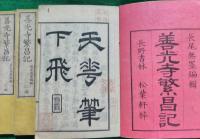 長尾無墨編輯
善光寺繁昌記
長野書林 松葉軒梓
天華筆
下飛
善光寺繁昌記
善光寺繁昌記